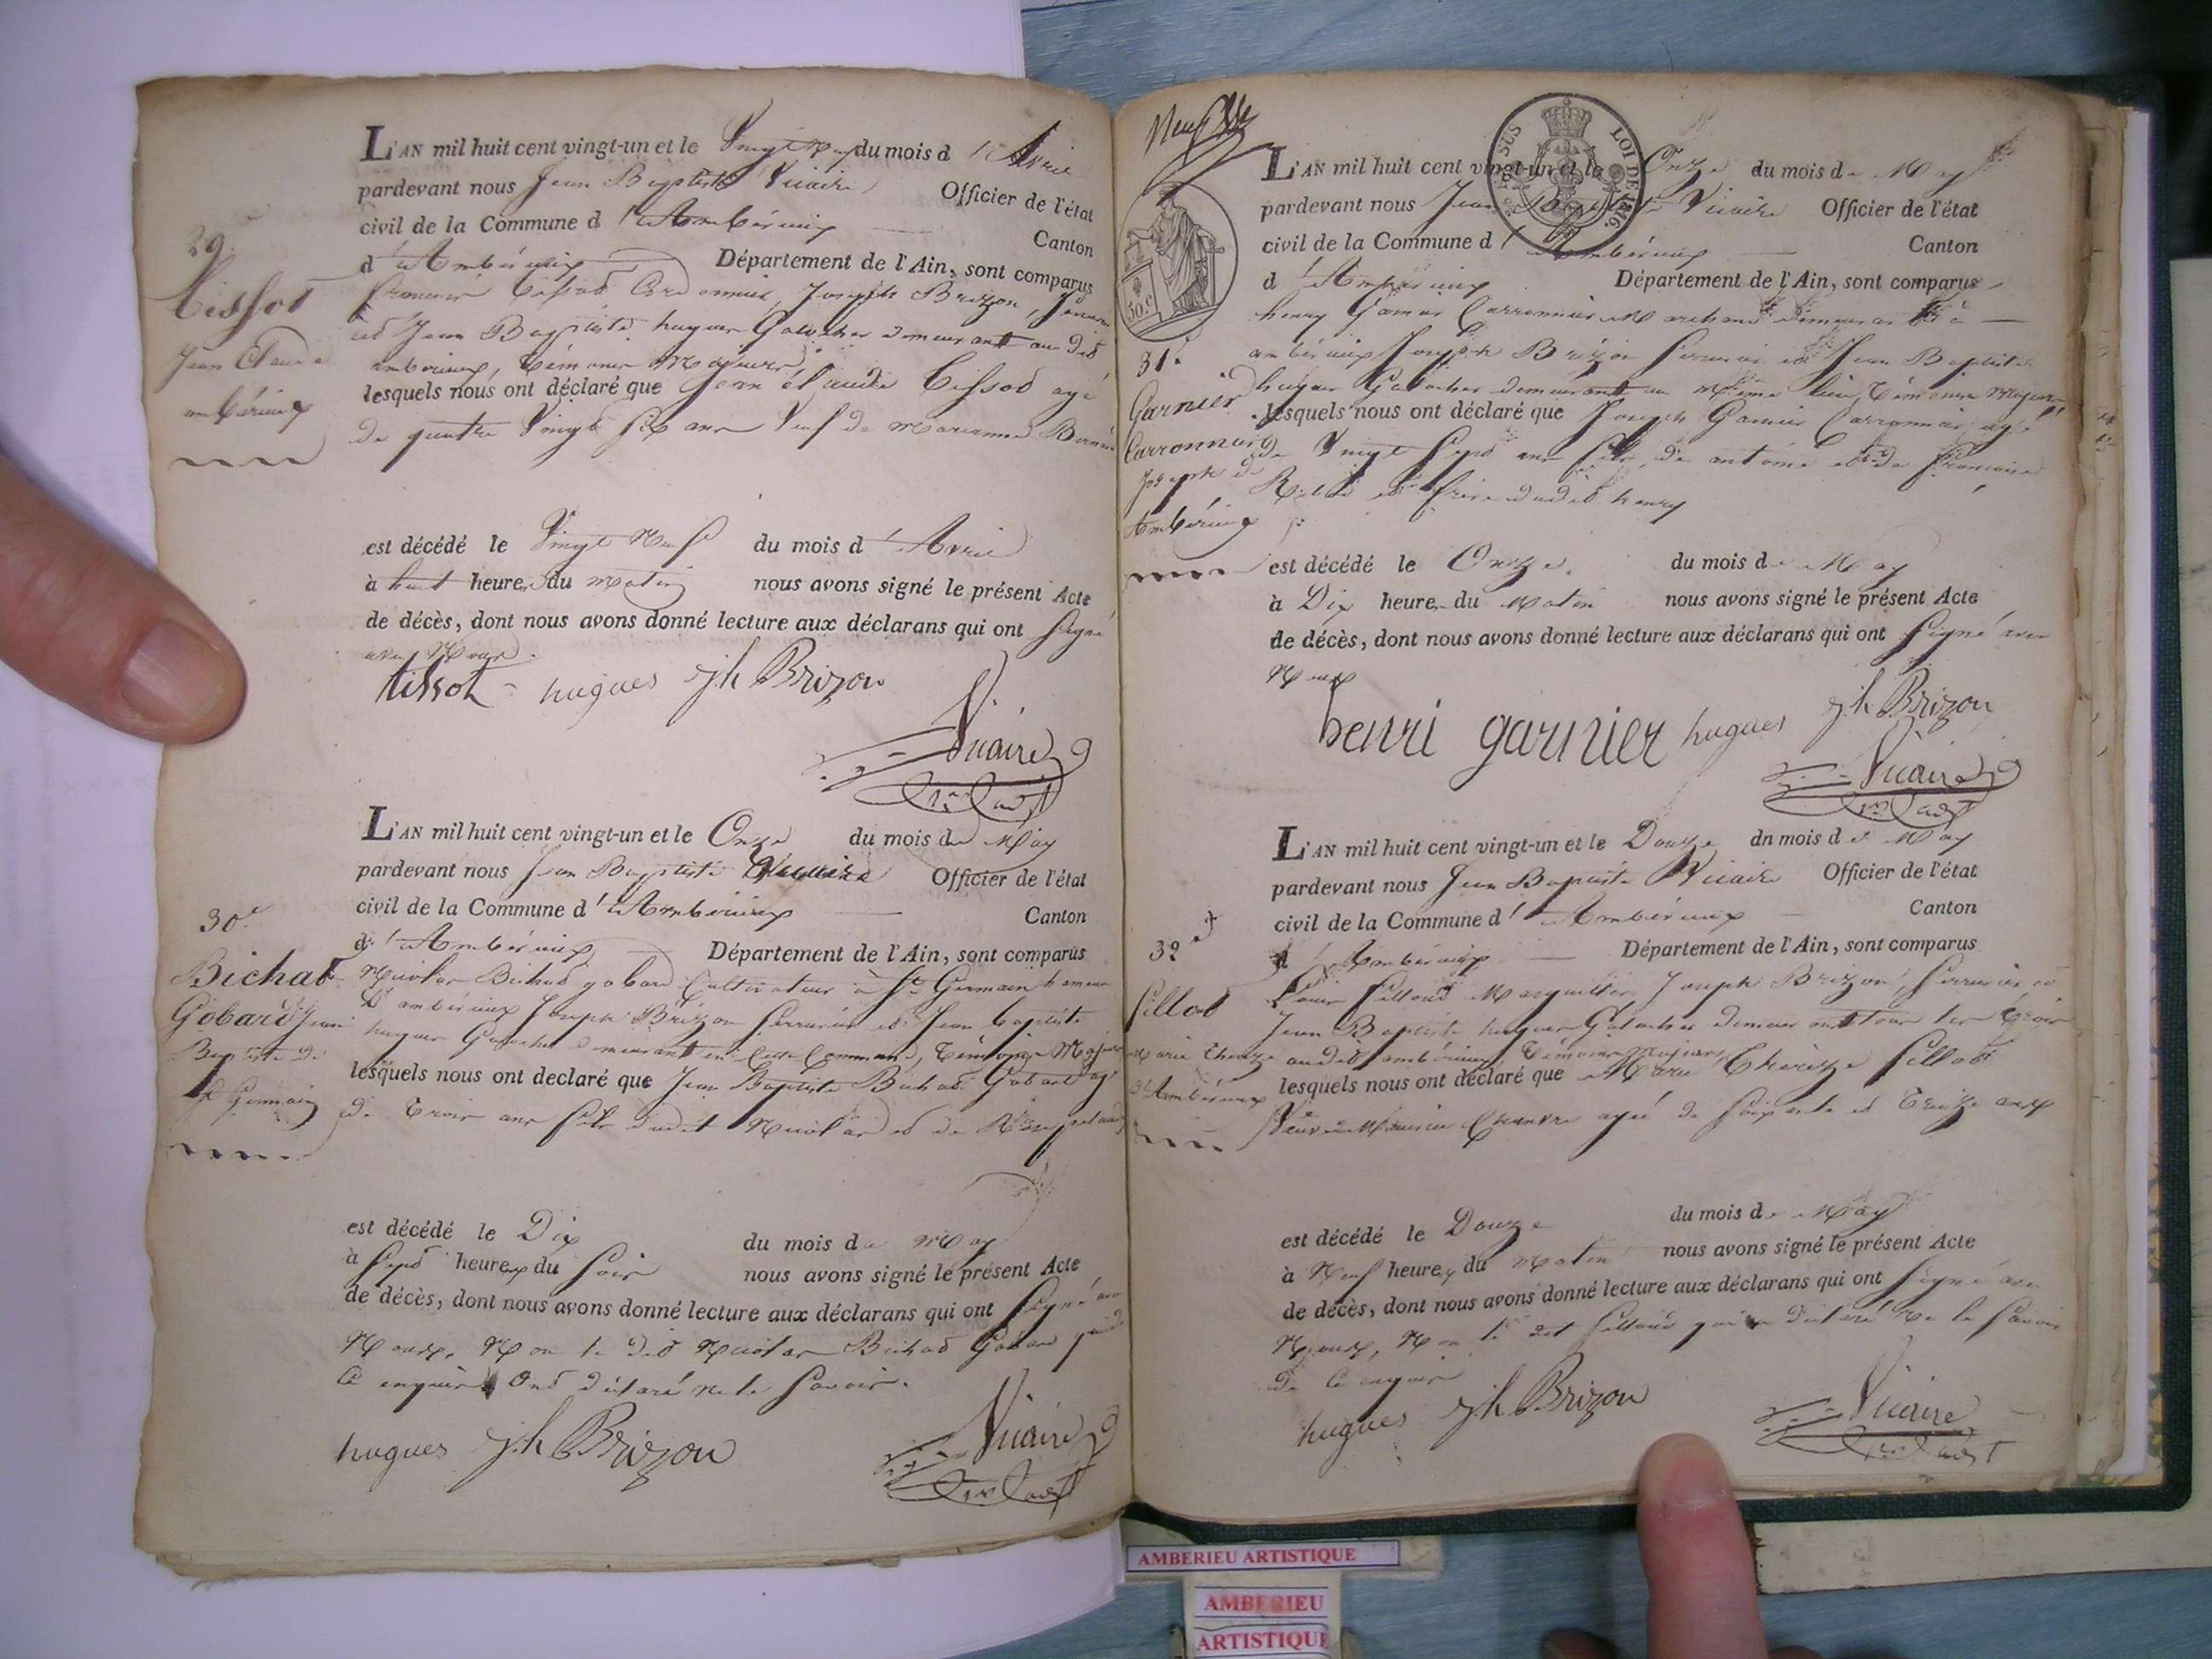 L'AN mil huit cent vingt-un et le Vingt Neuf du mois d'Avril
pardevant nous Jean Baptiste Vicaire Officier de l'état
civil de la Commune d'Ambérieux Canton
d'Ambérieux Département de l'Ain, sont comparus
29
Tissot
Jean Claude
ambérieux
francois Tissot Cordonnier, Joseph Brizon, Serrurier
et Jean Baptiste hugues Galocher demeurant au dit
ambérieux, Témoins Majeurs
lesquels nous ont déclaré que Jean Claude Tissot agé
de quatre Vingt Six ans Veuf de Marianne
est décédé le Vingt Neuf du mois d'Avril
à huit heures du matin nous avons signé le présent Acte
de décès, dont nous avons donné lecture aux déclarans qui ont Signé
avec Nous.
tissot hugues jh Brizon
Vicaire
1er adjt
L'AN mil huit cent vingt-un et le Onze du mois de May
pardevant nous Jean Baptiste Vicaire Officier de l'état
civil de la Commune d'Ambérieux Canton
d'Ambérieux Département de l'Ain, sont comparus
30e
Bichat
Gobard Jean
Baptiste de
St Germain
Nicolas Bichat gobard Cultivateur à St Germain hameau
d'ambérieux Joseph Brizon Serrurier et Jean baptiste
hugues Galocher demeurant en Cette Commune, Témoins Majeurs
lesquels nous ont declaré que Jean Baptiste Bichat Gobard agé
de Trois ans fils dudit Nicolas et de
est décédé le Dix du mois de May
à Sept heures du Soir nous avons signé le présent Acte
de décès, dont nous avons donné lecture aux déclarans qui ont Signé avec
Nous, Non le dit Nicolas Bichat Gobard qui de
Ce enquis Ont déclaré ne le Savoir.
hugues jh Brizon
Vicaire
1er adjt
SUS
LOI DE 1816.
30.c
L'AN mil huit cent vingt-un et le Onze du mois de May
pardevant nous Jean Baptiste Vicaire Officier de l'état
civil de la Commune d'Ambérieux Canton
d'Ambérieux Département de l'Ain, sont comparus
31e
Garnier
Carronnier
Joseph d'
Ambérieux
henry Garnier Carronnier Marchand demeurant à
ambérieux Joseph Brizon Serrurier et Jean Baptiste
hugues Galocher demeurant au Même lieu, Témoins Majeurs
lesquels nous ont déclaré que Joseph Garnier Carronnier agé
de Vingt Sept ans fils de antoine et de francoise
et frère dudit henry
est décédé le Onze du mois de May
à Dix heures du Matin nous avons signé le présent Acte
de décès, dont nous avons donné lecture aux déclarans qui ont Signé avec
Nous
henri garnier hugues jh Brizon
Vicaire
1er adjt
L'AN mil huit cent vingt-un et le Douze dn mois de May
pardevant nous Jean Baptiste Vicaire Officier de l'état
civil de la Commune d'Ambérieux Canton
d'Ambérieux Département de l'Ain, sont comparus
32e
fillod
Marie Thereze
d'Ambérieux
Louis filloud Marguillier, Joseph Brizon, Serrurier et
Jean Baptiste hugues Galocher demeurant tous les Trois
audit ambérieux, Témoins Majeurs
lesquels nous ont déclaré que Marie Thereze fillod
Veuve de Maurice Chanvre agée de Soixante et Treize ans
est décédé le Douze du mois de May
à Neuf heures du Matin nous avons signé le présent Acte
de décès, dont nous avons donné lecture aux déclarans qui ont Signé avec
Nous, Non le dit filloud qui a déclaré Ne le Savoir
de Ce enquis
hugues jh Brizon
Vicaire
1er adjt
AMBERIEU ARTISTIQUE
AMBERIEU
ARTISTIQUE